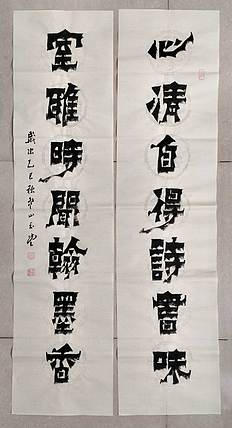 心清自得詩書味
室雅時聞翰墨香
歲次乙巳秋